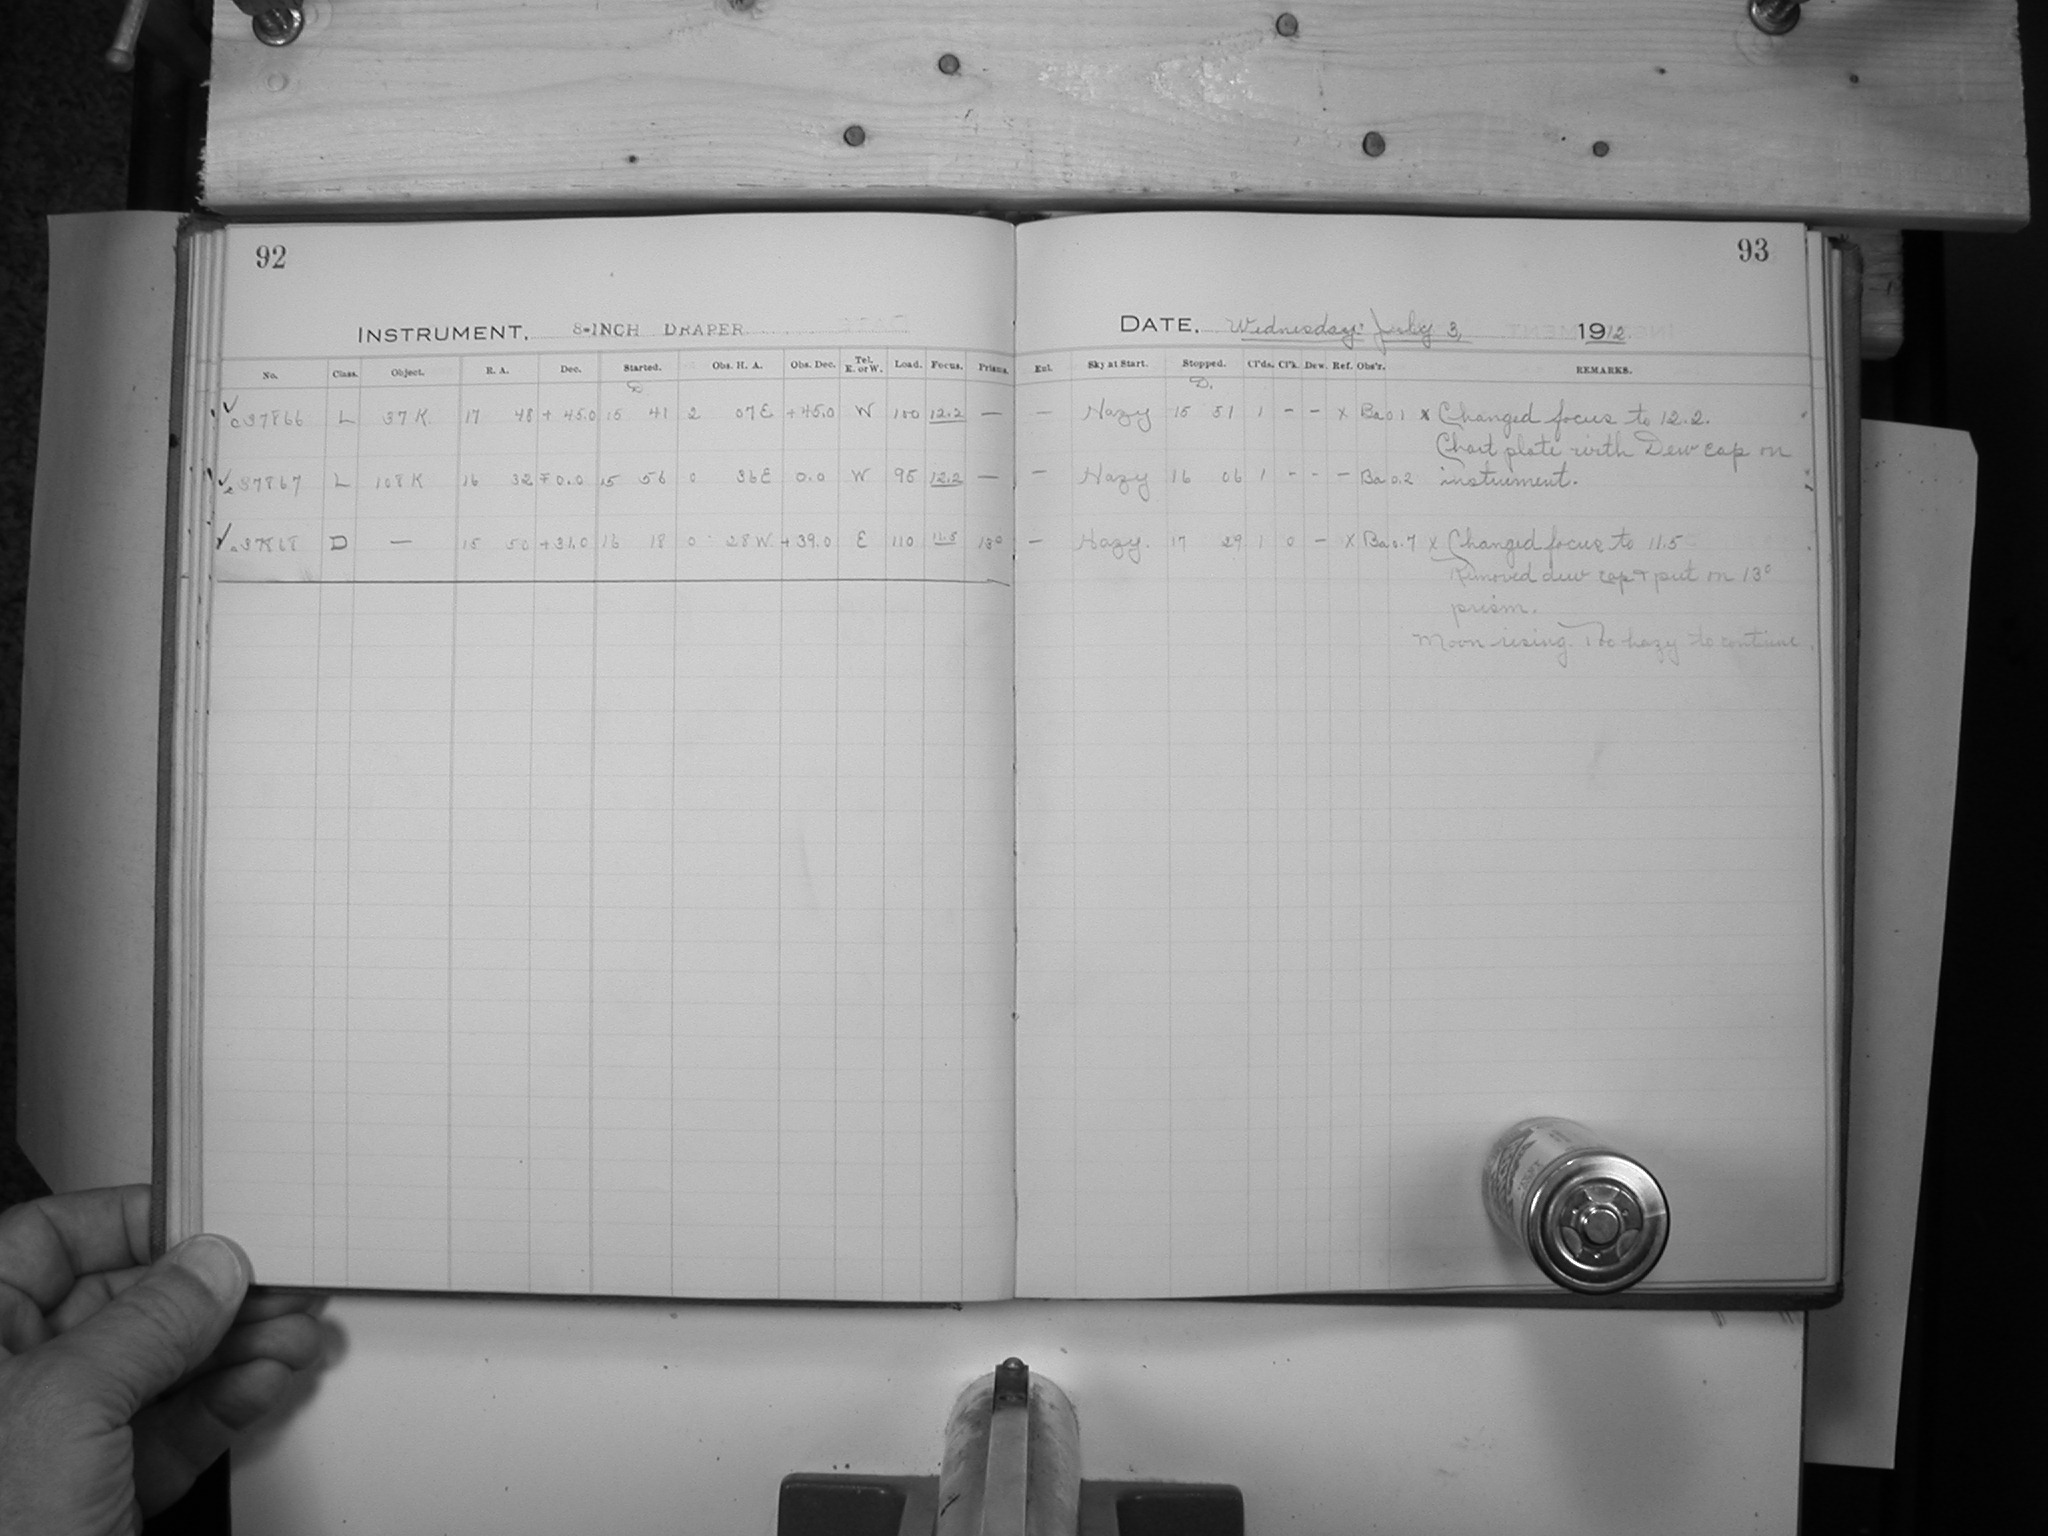 92
INSTRUMENT, 8-INCH DRAPER
No. Class. Object. R. A. Dec. Started. Obs. H. A. Obs. Dec. Tel. E. or W. Load. Focus. Prisms.
c37866 L 37 K 17 48 + 45.0 15 41 2 07 E +45.0 W 100 12.2 —
37867 L 108 K 16 32 0.0 15 56 0 36 E 0.0 W 95 12.2 —
37868 D — 15 50 +31.0 16 18 0 28 W +39.0 E 110 11.5 13°
93
DATE, Wednesday July 3, 1912.
Sky at Start. Stopped. Cl'ds. Cl'k. Dew. Ref. Obs'r. REMARKS.
D.
— Hazy 15 51 1 - - x Ba 0.1 x Changed focus to 12.2.
Chart plate with Dew cap on
— Hazy 16 06 1 - - - Ba 0.2 instrument.
— Hazy. 17 29 1 0 - x Ba 0.7 x Changed focus to 11.5
Removed dew cap + put on 13°
prism.
Moon rising. Too hazy to continue.